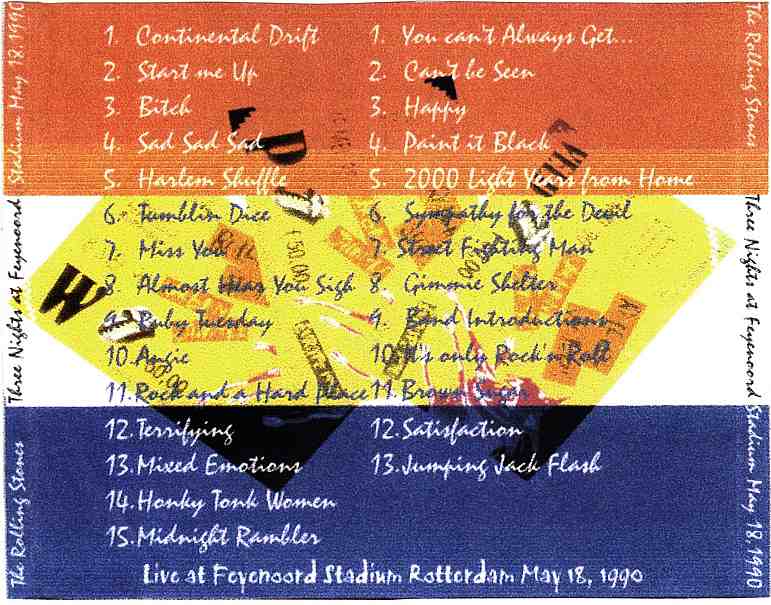 The Rolling Stones Three Nights at Feyenoord Stadium May 18,1990
1. Continental Drift
2. Start me Up
3. Bitch
4. Sad Sad Sad
5. Harlem Shuffle
6. Tumblin Dice
7. Miss You
8. Almost Hear You Sigh
9. Ruby Tuesday
10.Angie
11.Rock and a Hard Place
12.Terrifying
13.Mixed Emotions
14.Honky Tonk Women
15.Midnight Rambler
1. You can't Always Get...
2. Can't be Seen
3. Happy
4. Paint it Black
5. 2000 Light Years from Home
6. Sympathy for the Devil
7 Street Fighting Man
8. Gimmie Shelter
9. Band Introductions
10.It's only Rock'n Roll
11.Brown Sugar
12.Satisfaction
13.Jumping Jack Flash
Live at Feyenoord Stadium Rotterdam May 18, 1990
The Rolling Stones Three Nights at Feyenoord Stadium May 18,1990